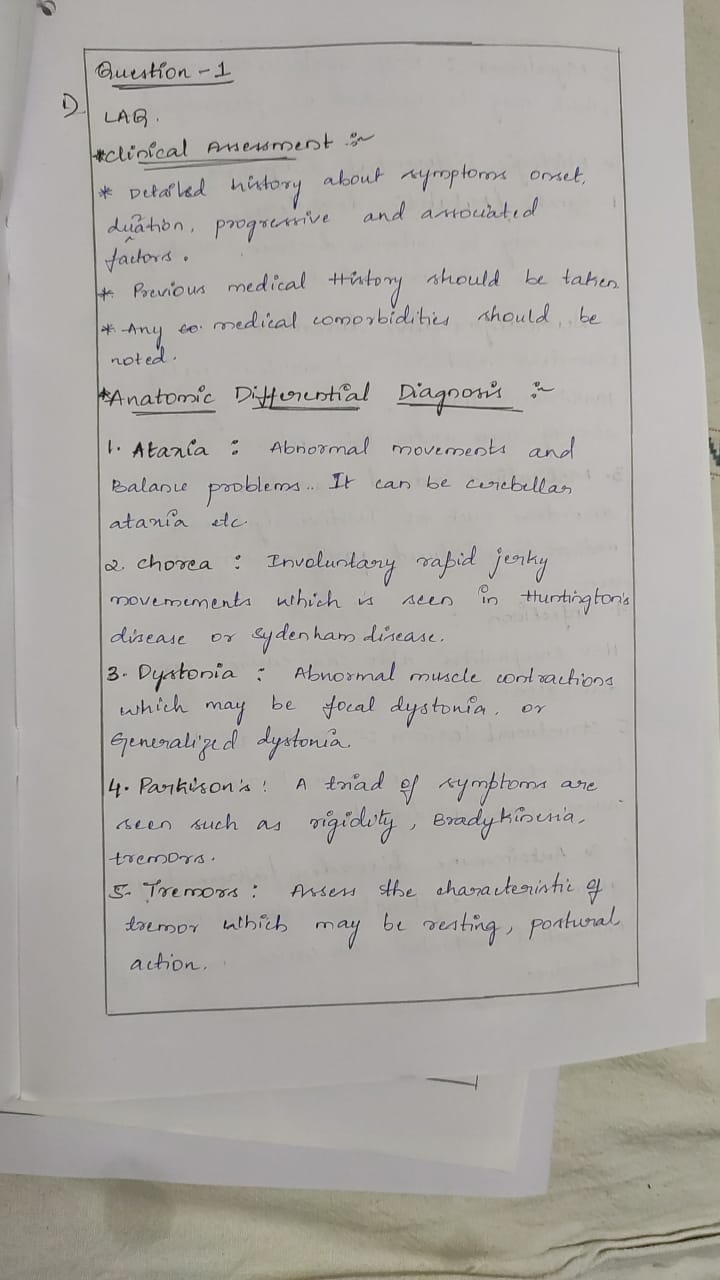 Question - 1
1) LAQ.
*Clinical Assessment :~
* Detailed history about symptoms onset,
duation, progressive and associated
factors.
* Previous medical History should be taken
* Any co. medical comorbidities should be
noted.
*Anatomic Differential Diagnosis :~
1. Ataxia : Abnormal movements and
Balance problems.. It can be cerebellar
ataxia etc.
2. Chorea : Involuntary rapid jerky
movements which is seen in Huntington's
disease or Sydenham disease.
3. Dystonia : Abnormal muscle contractions
which may be focal dystonia. or
Generalized dystonia.
4. Parkison's : A triad of symptoms are
seen such as rigidity, Bradykinesia,
tremors.
5. Tremors : Assess the characteristic of
tremor which may be resting, postural
action.